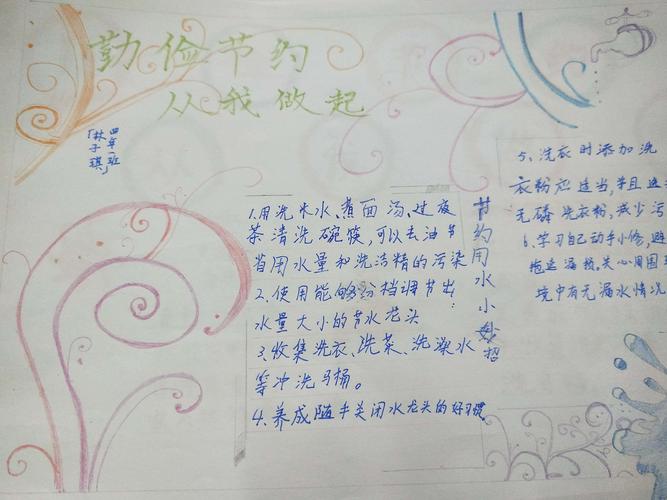 勤俭节约
从我做起
四年一班
「林子琪」
1.用洗米水、煮面汤、过夜
茶清洗碗筷,可以去油节
省用水量和洗洁精的污染
2.使用能够分档调节出
水量大小的节水龙头
3.收集洗衣、洗菜、洗澡水
等冲洗马桶。
4.养成随手关闭水龙头的好习惯
节约用水小妙招
5、洗衣时添加洗
衣粉应适当,并且选
无磷洗衣粉,减少污
6、学习自己动手小修,避
拖延漏损,关心周围环
境中有无漏水情况